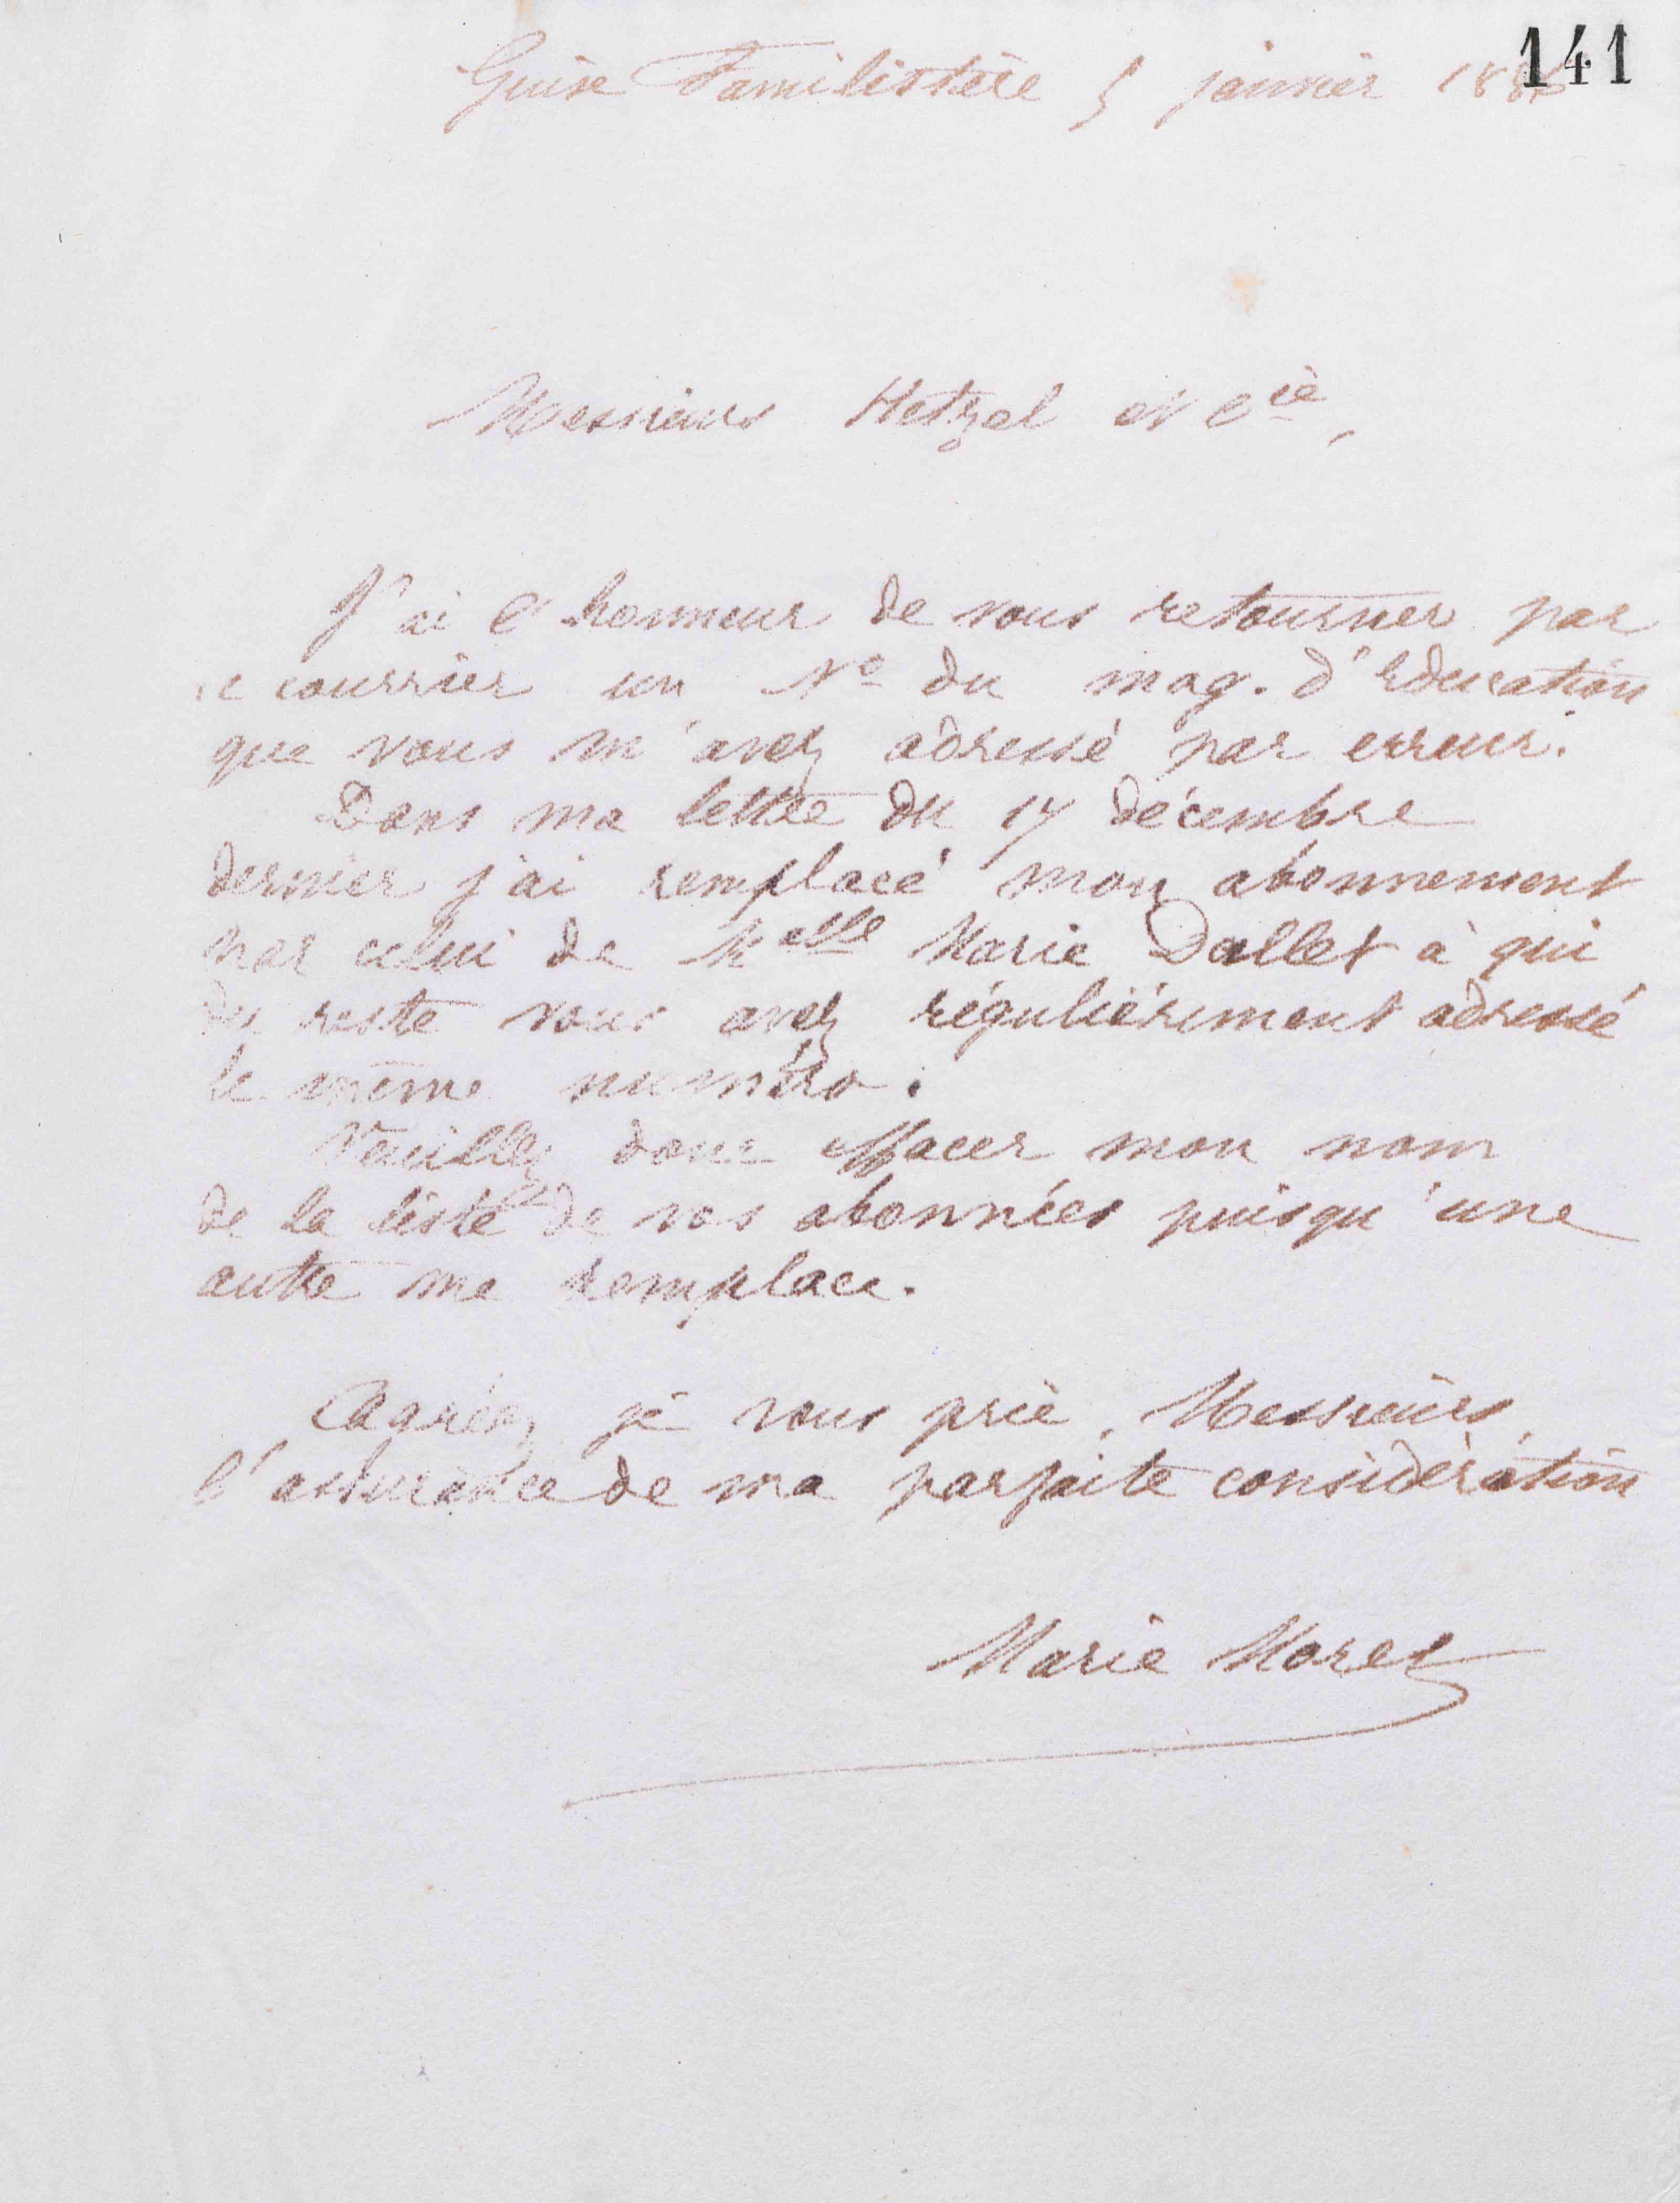 141
Guise Familistère 5 janvier
Messieurs Hetzel et Cie,
J'ai l'honneur de vous retourner par
ce courrier un No du mag. d'Education
que vous m'avez adressé par erreur.
Dans ma lettre du 17 décembre
dernier j'ai remplacé mon abonnement
par celui de Melle Marie Dallet à qui
du reste vous avez régulièrement adressé
le même numéro.
Veuillez donc effacer mon nom
de la liste de vos abonnées puisqu'une
autre me remplace.
Agréez je vous prie, Messieurs,
l'assurance de ma parfaite considération
Marie Moret